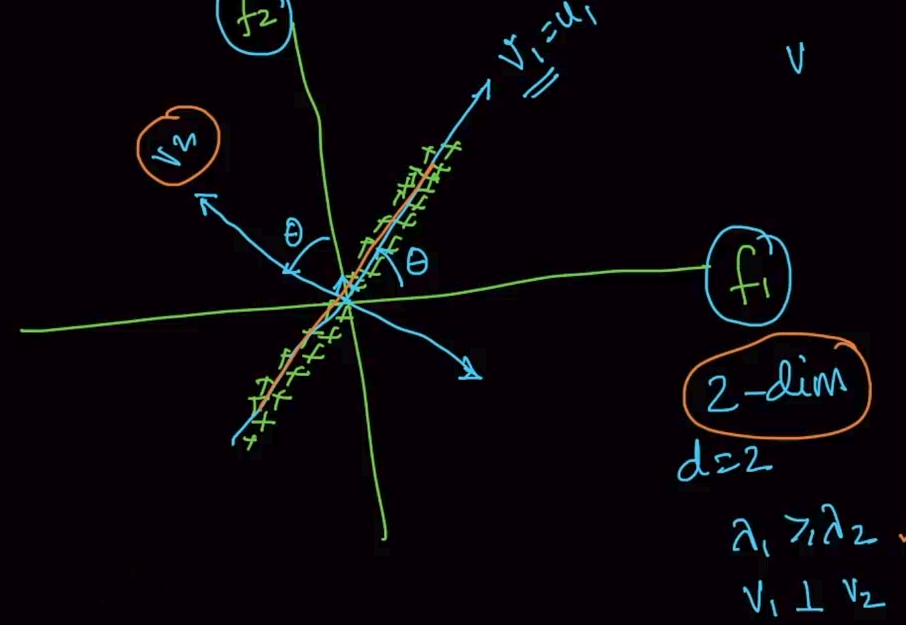 f2
V₁ = u₁
V
V₂
θ
θ
f₁
2-dim
d=2
λ₁ ≥ λ₂
V₁ ⊥ V₂